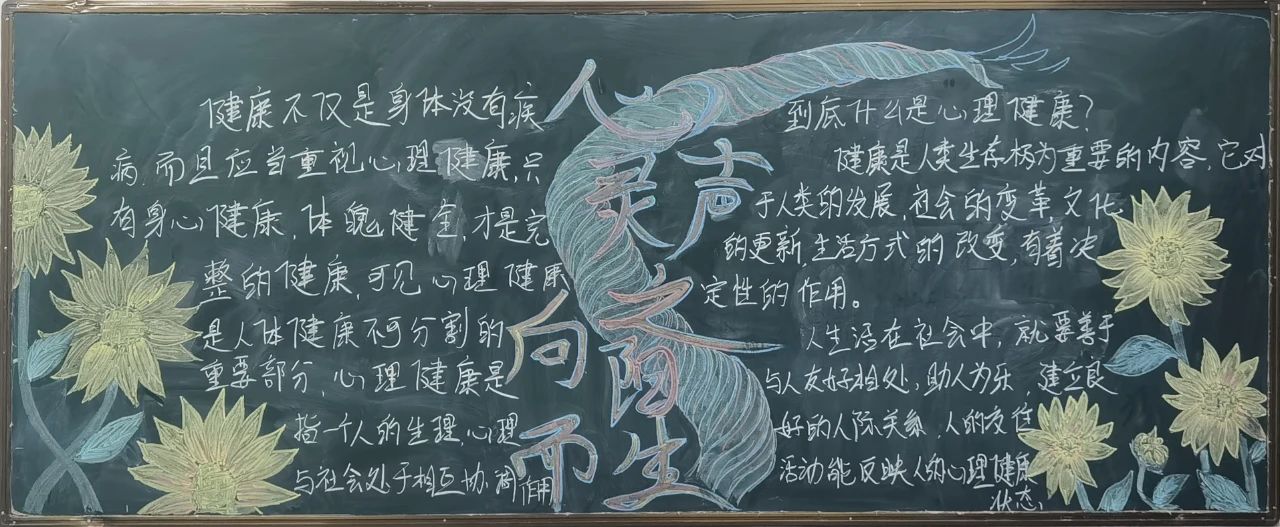 健康不仅是身体没有疾
病,而且应当重视心理健康,只
有身心健康,体魄健全,才是完
整的健康,可见心理健康
是人体健康不可分割的
重要部分,心理健康是
指一个人的生理,心理
与社会处于相互协调作用
心灵之声
向阳而生
到底什么是心理健康?
健康是人类生存极为重要的内容,它对
于人类的发展,社会的变革,文化
的更新,生活方式的改变,有着决
定性的作用。
人生活在社会中,就要善于
与人友好相处,助人为乐,建立良
好的人际关系,人的交往
活动能反映人的心理健康
状态,